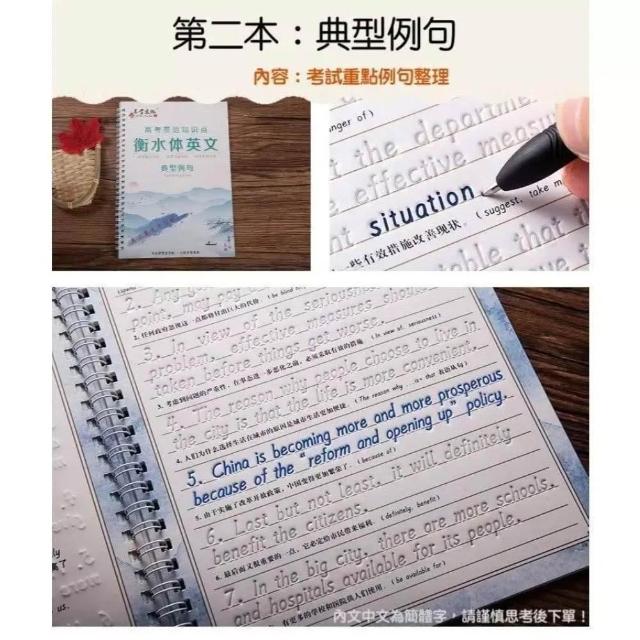 第二本：典型例句
內容：考試重點例句整理
衡水体英文
典型例句
nger of)
the department
effective measu
situation
(suggest, take m
些有效措施改善现状。
table that
2. Any go
point, may pay
(be blind
3. In view of the seriousness
problem, effective measures should
taken before things get worse.
(In view of, seriousness)
4. The reason why people choose to live in
the city is that the life is more convenient.
4. 人们为什么选择生活在城市的原因是城市生活更加便捷。(The reason why ... is that 表语从句)
5. China is becoming more and more prosperous
because of the "reform and opening up" policy.
5. 由于实施了改革开放政策，中国变得更加繁荣了。(because of)
6. Last but not least, it will definitely
benefit the citizens.
6. 最后而又很重要的一点，它必定给市民带来福利。(definitely, benefit)
7. In the big city, there are more schools,
and hospitals available for its people.
有更多的学校和医院供人们使用。(be available for)
內文中文為簡體字，請謹慎思考後下單！